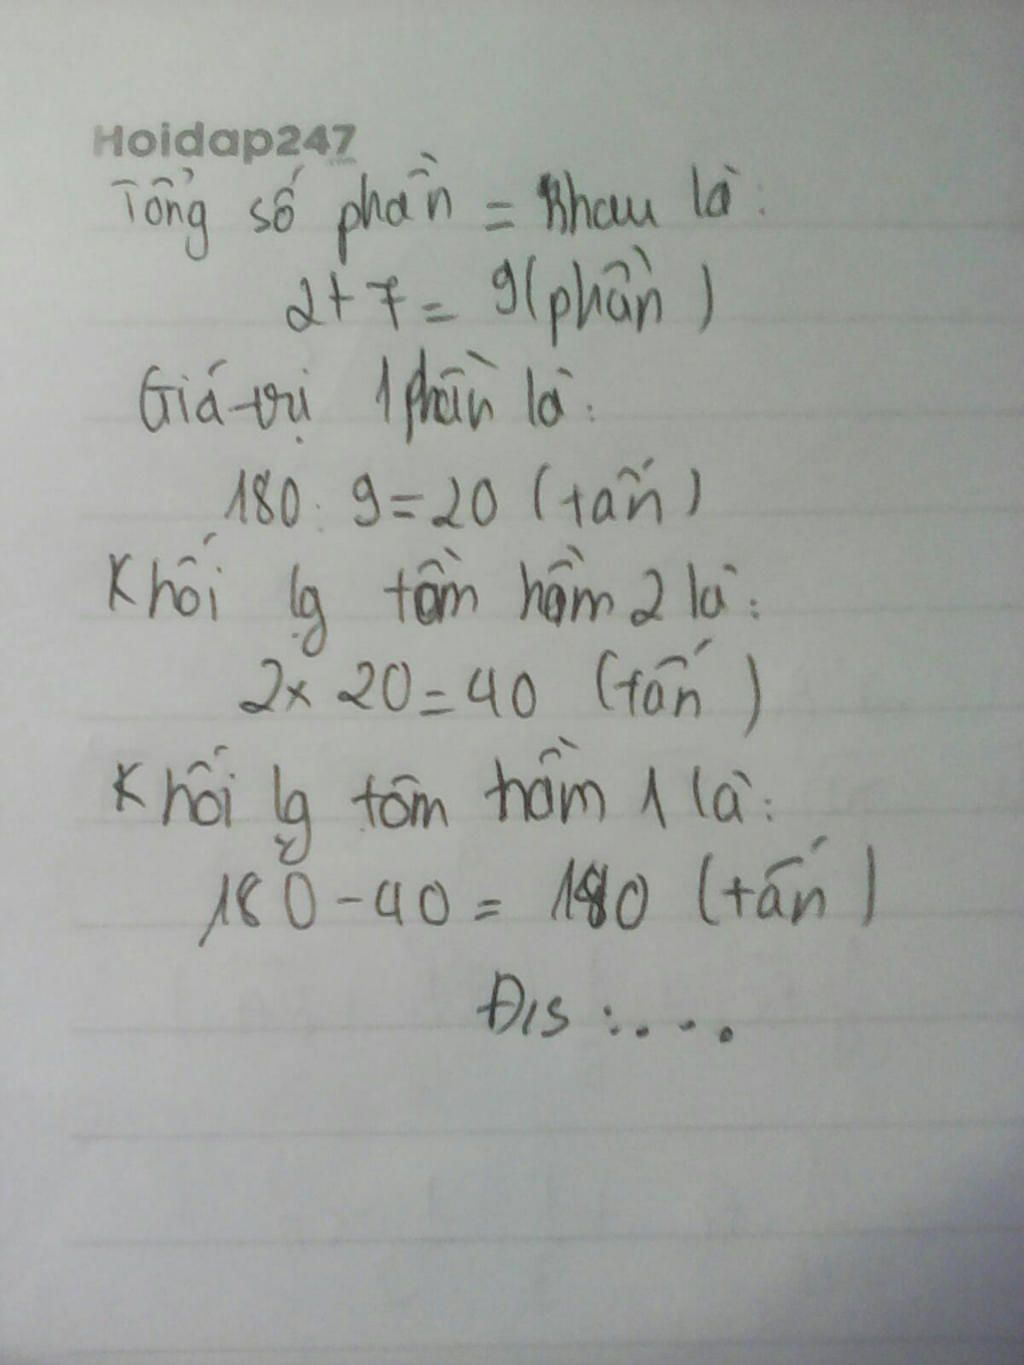 Hoidap247
Tổng số phần = nhau là:
2 + 7 = 9 (phần)
Giá trị 1 phần là:
180 : 9 = 20 (tấn)
Khối lg tôm hầm 2 là:
2 x 20 = 40 (tấn)
Khối lg tôm hầm 1 là:
180 - 40 = 140 (tấn)
Đ/s : . . . .